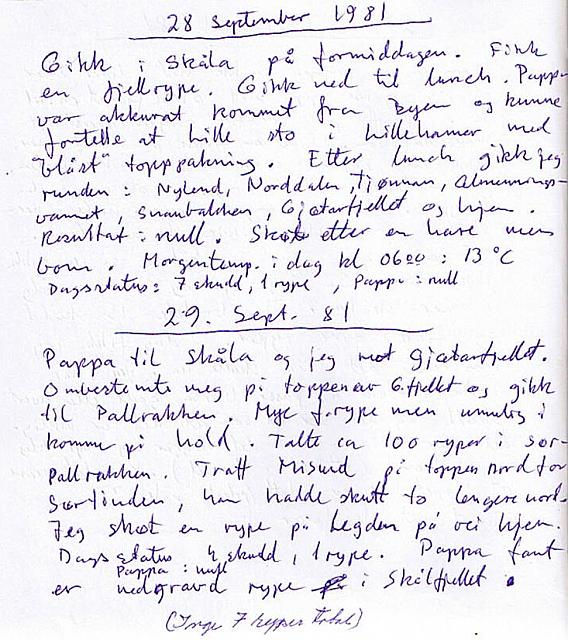 28 September 1981
Gikk i Skåla på formiddagen. Fikk
en fjellrype. Gikk ned til lunch. Pappa
var akkurat kommet fra byen og kunne
fortelle at Lille sto i Lillehamer med
"blåst" topppakning. Etter lunch gikk jeg
runden : Nylend, Norddalen, Tjønnan, Almennings-
vannet, Snaubakken, Gjetarfjellet og hjem.
Resultat : null. Skøt etter en hare men
bom. Morgentemp. i dag kl 0600 : 13 °C
Dagsstatus : 7 skudd, 1 rype, Pappa : null
29. Sept. 81
Pappa til Skåla og jeg mot Gjetarfjellet.
Ombestemte meg på toppen av G.fjellet og gikk
til Pallrakken. Mye f.rype men umulig å
komme på hold. Talte ca 100 ryper i sør-
pallrakken. Traff Misund på toppen nord for
Sørtinden, han hadde skutt to lengere nord.
Jeg skøt en rype på Legden på vei hjem.
Dags status 4 skudd, 1 rype. Pappa fant
Pappa : null
er nedgravd rype i Skålfjellet.
(Inge 7 total)